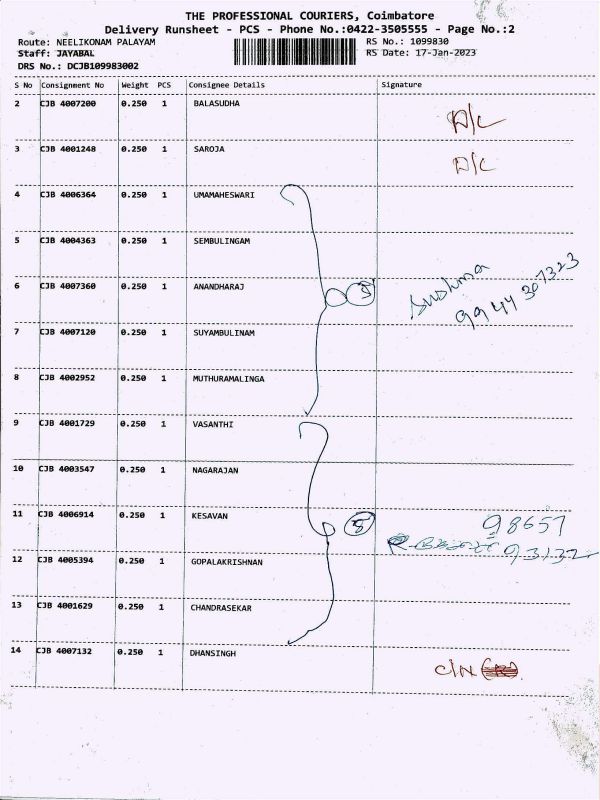 THE PROFESSIONAL COURIERS, Coimbatore
Delivery Runsheet - PCS - Phone No.:0422-3505555 - Page No.:2
Route: NEELIKONAM PALAYAM RS No.: 1099830
Staff: JAYABAL RS Date: 17-Jan-2023
DRS No.: DCJB109983002
S No Consignment No Weight PCS Consignee Details Signature
2 CJB 4007200 0.250 1 BALASUDHA D/C
3 CJB 4001248 0.250 1 SAROJA D/C
4 CJB 4006364 0.250 1 UMAMAHESWARI
5 CJB 4004363 0.250 1 SEMBULINGAM
6 CJB 4007360 0.250 1 ANANDHARAJ 5 Sushma
9944307323
7 CJB 4007120 0.250 1 SUYAMBULINAM
8 CJB 4002952 0.250 1 MUTHURAMALINGA
9 CJB 4001729 0.250 1 VASANTHI
10 CJB 4003547 0.250 1 NAGARAJAN
11 CJB 4006914 0.250 1 KESAVAN 98657
93132
12 CJB 4005394 0.250 1 GOPALAKRISHNAN
13 CJB 4001629 0.250 1 CHANDRASEKAR
14 CJB 4007132 0.250 1 DHANSINGH C/N